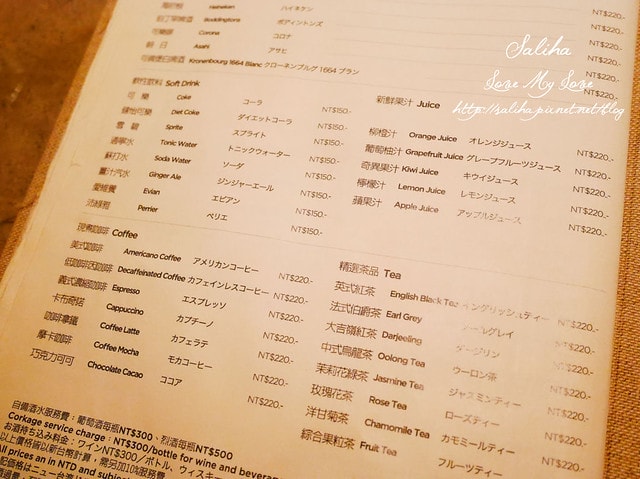 Heineken ハイネケン NT$220.-
Boddingtons ボディントンズ NT$220.-
可樂娜 Corona コロナ NT$220.-
朝日 Asahi アサヒ NT$220.-
Kronenbourg 1664 Blanc クローネンブルグ 1664 ブラン NT$220.-
Saliha
Love My Love
http://saliha.pixnet.net/blog
軟性飲料 Soft Drink
可樂 Coke コーラ NT$150.-
健怡可樂 Diet Coke ダイエットコーラ NT$150.-
雪碧 Sprite スプライト NT$150.-
通寧水 Tonic Water トニックウォーター NT$150.-
蘇打水 Soda Water ソーダ NT$150.-
薑汁汽水 Ginger Ale ジンジャーエール NT$150.-
愛維養 Evian エビアン NT$150.-
沛綠雅 Perrier ペリエ NT$150.-
新鮮果汁 Juice
柳橙汁 Orange Juice オレンジジュース NT$220.-
葡萄柚汁 Grapefruit Juice グレープフルーツジュース NT$220.-
奇異果汁 Kiwi Juice キウイジュース NT$220.-
檸檬汁 Lemon Juice レモンジュース NT$220.-
蘋果汁 Apple Juice アップルジュース NT$220.-
現煮咖啡 Coffee
美式咖啡 Americano Coffee アメリカンコーヒー NT$220.-
低咖啡因咖啡 Decaffeinated Coffee カフェインレスコーヒー NT$220.-
義式濃縮咖啡 Espresso エスプレッソ NT$220.-
卡布奇諾 Cappuccino カプチーノ NT$220.-
咖啡拿鐵 Coffee Latte カフェラテ NT$220.-
摩卡咖啡 Coffee Mocha モカコーヒー NT$220.-
巧克力可可 Chocolate Cacao ココア NT$220.-
精選茶品 Tea
英式紅茶 English Black Tea イングリッシュティー NT$220.-
法式伯爵茶 Earl Grey アールグレイ NT$220.-
大吉嶺紅茶 Darjeeling ダージリン NT$220.-
中式烏龍茶 Oolong Tea ウーロン茶 NT$220.-
茉莉花綠茶 Jasmine Tea ジャスミンティー NT$220.-
玫瑰花茶 Rose Tea ローズティー NT$220.-
洋甘菊茶 Chamomile Tea カモミールティー NT$220.-
綜合果粒茶 Fruit Tea フルーツティー NT$220.-
自備酒水服務費：葡萄酒每瓶NT$300、烈酒每瓶NT$500
Corkage service charge：NT$300/bottle for wine and
お酒持ち込み料金：ワインNT$300／ボトル、ウィスキー
以上價格皆以新台幣計費，需另加10%服務費
All prices are in NTD and